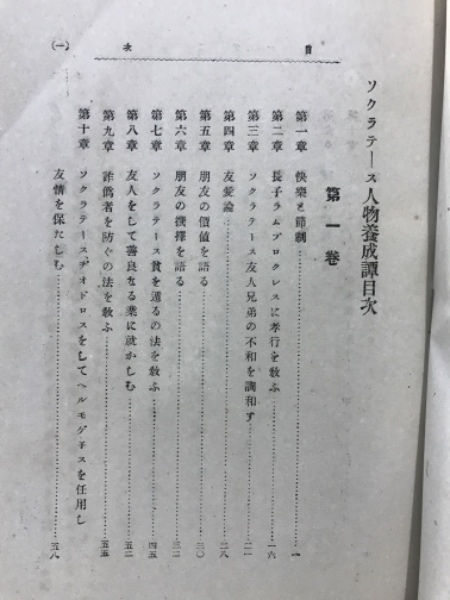 ソクラテース人物養成譚目次
目次
(一)
第一卷
第一章 快樂と節制 一
第二章 長子ラムプロクレスに孝行を敎ふ 一六
第三章 ソクラテース友人兄弟の不和を調和す 二一
第四章 友愛論 二八
第五章 朋友の價値を語る 三〇
第六章 朋友の撰擇を語る 三二
第七章 ソクラテース貧を遁るの法を敎ふ 四五
第八章 友人をして善良なる業に就かしむ 五二
第九章 詐僞者を防ぐの法を敎ふ 五五
第十章 ソクラテースヂオドロスをしてヘルモゲネスを任用し
友情を保たしむ 五八